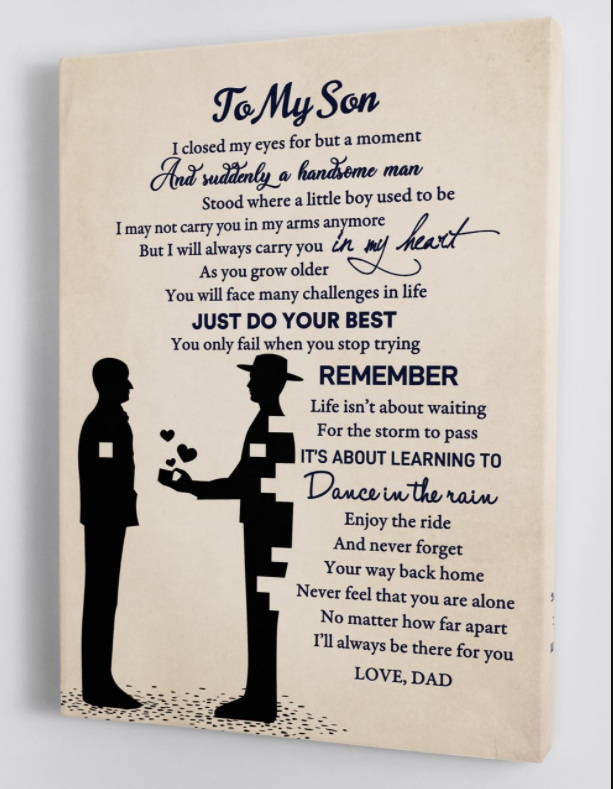 To My Son
I closed my eyes for but a moment
And suddenly a handsome man
Stood where a little boy used to be
I may not carry you in my arms anymore
But I will always carry you in my heart
As you grow older
You will face many challenges in life
JUST DO YOUR BEST
You only fail when you stop trying
REMEMBER
Life isn't about waiting
For the storm to pass
IT'S ABOUT LEARNING TO
Dance in the rain
Enjoy the ride
And never forget
Your way back home
Never feel that you are alone
No matter how far apart
I'll always be there for you
LOVE, DAD